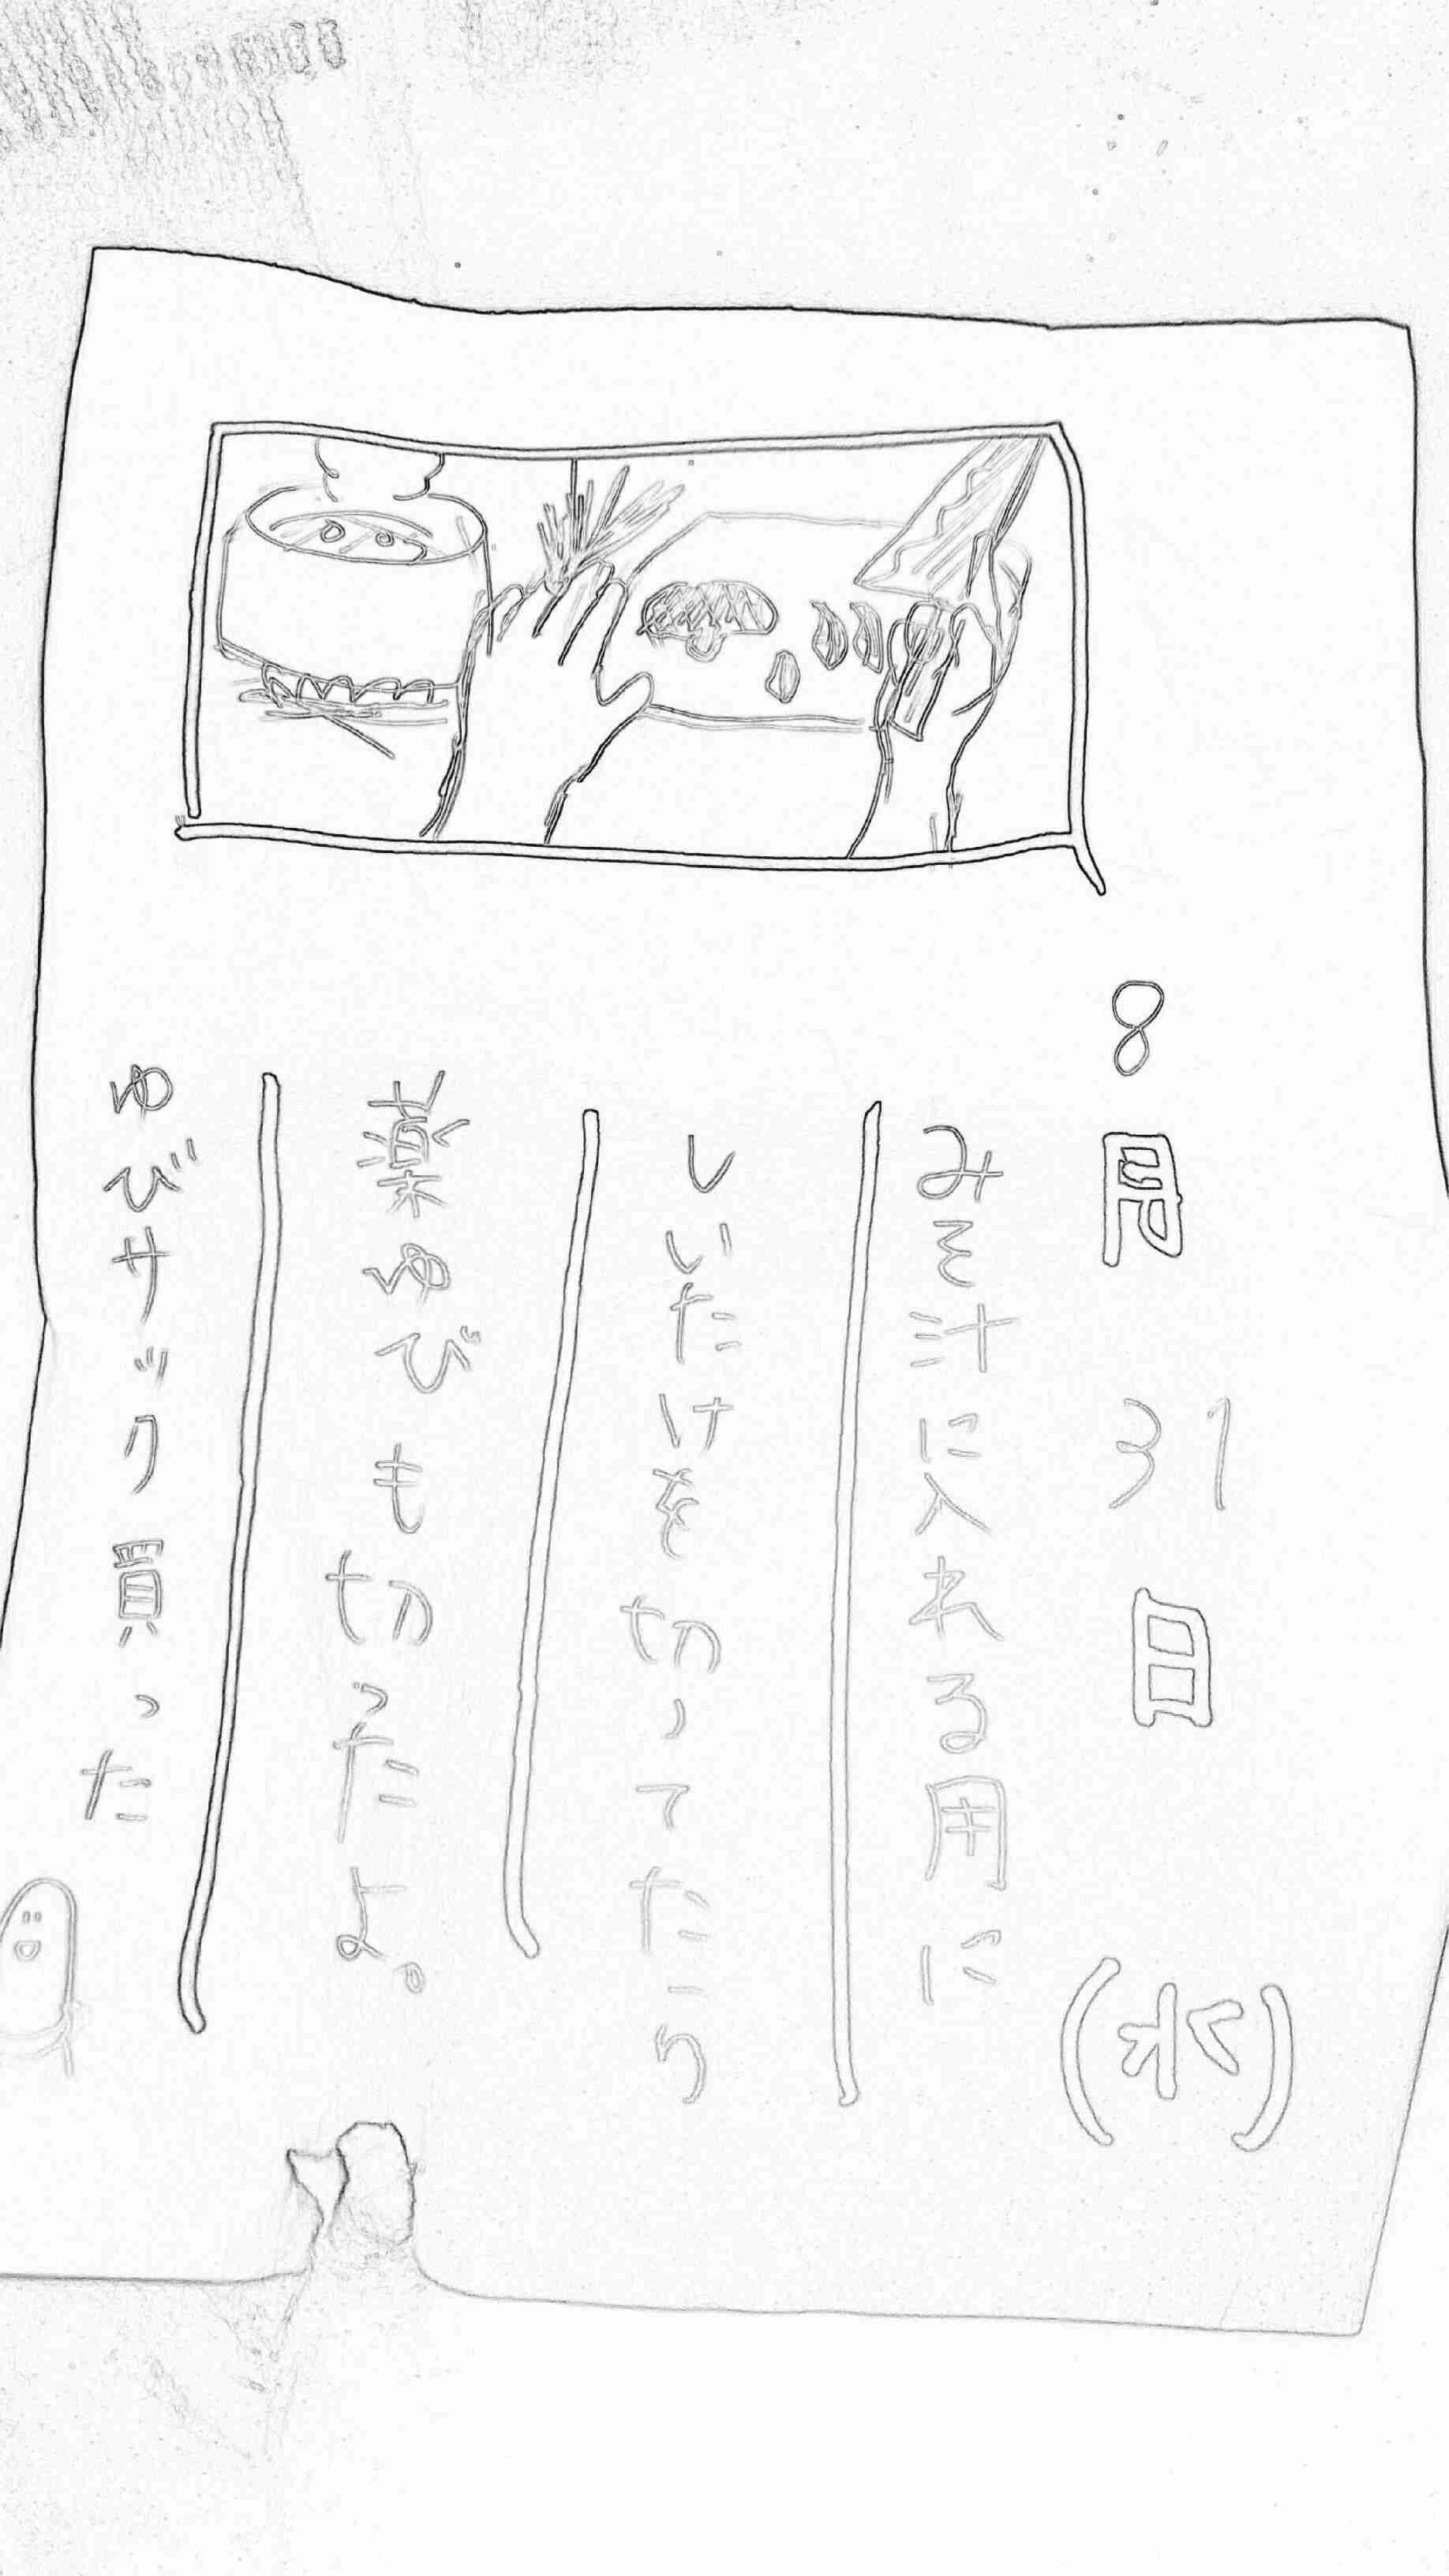 8月31日(水)
みそ汁に入れる用に
しいたけを切ってたら
薬ゆびも切ったよ。
ゆびサック買った